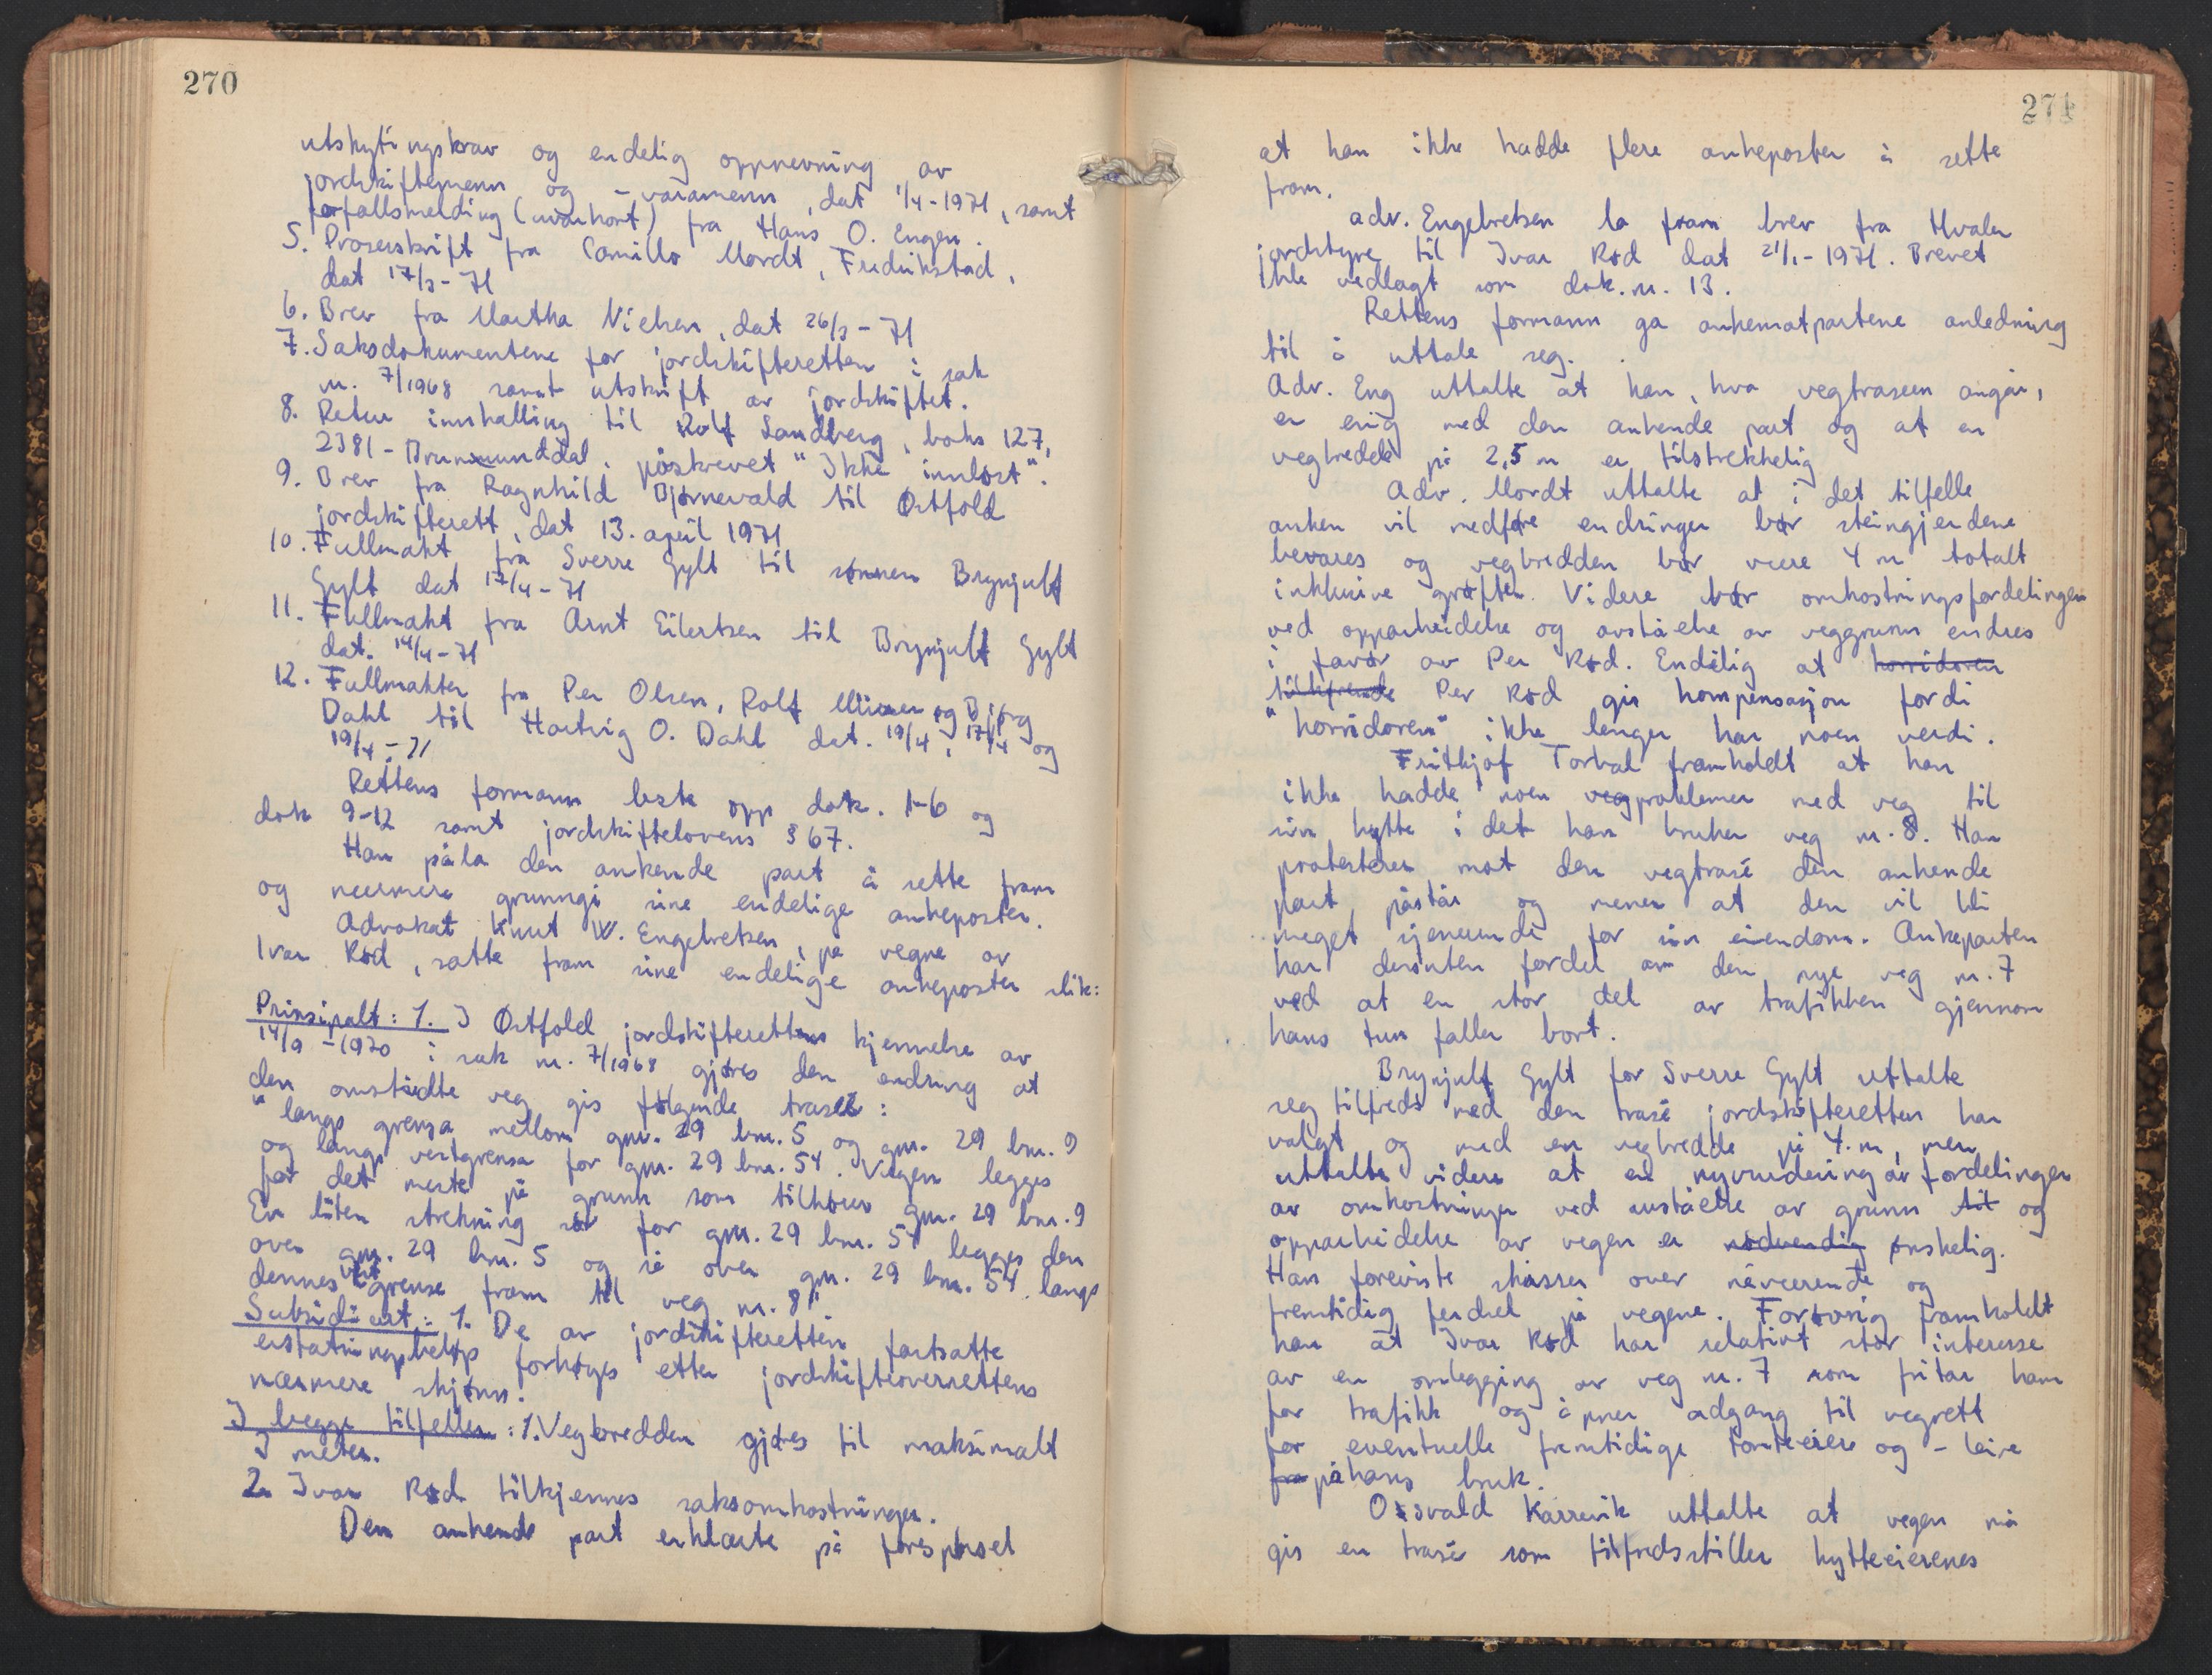 270
utskytingskrav og endelig oppnevning av
jordskiftemenn og -varamenn, dat 1/4-1971, samt
forfallsmelding (svarkort) fra Hans O. Engen.
5. Prosesskrift fra Camillo Mordt, Fredrikstad,
dat 17/3-71
6. Brev fra Martha Nielsen, dat 26/3-71
7. Saksdokumentene for jordskifteretten i sak
nr. 7/1968 samt utskrift av jordskiftet.
8. Retur innkalling til Rolf Sandberg, boks 127,
2381-Brumunddal, påskrevet "Ikke innløst".
9. Brev fra Ragnhild Bjørnevald til Østfold
jordskifterett, dat 13. april 1971
10. Fullmakt fra Sverre Gylt til sønnen Brynjulf
Gylt dat 17/4-71
11. Fullmakt fra Arnt Eilertsen til Brynjulf Gylt
dat. 14/4-71
12. Fullmakter fra Per Olsen, Rolf og Bjørg
Dahl til Hartvig O. Dahl dat. 19/4, 17/4 og
19/4-71
Rettens formann leste opp dok. 1-6 og
dok 9-12 samt jordskiftelovens § 67.
Han påla den ankende part å sette fram
og nærmere grunngi sine endelige ankeposter.
Advokat Knut W. Engebretsen, på vegne av
Ivar Rød, satte fram sine endelige ankeposter slik:
Prinsipalt: 1. I Østfold jordskifterettens kjennelse av
14/9-1970 i sak nr. 7/1968 gjøres den endring at
den omstridte veg gis følgende trasé:
"langs grensa mellom gnr. 29 bnr. 5 og gnr. 29 bnr. 9
og langs vestgrensa for gnr. 29 bnr. 54. Vegen legges
for det meste på grunn som tilhører gnr. 29 bnr. 9
En liten strekning sør for gnr. 29 bnr. 54 legges den
over gnr. 29 bnr. 5 og så over gnr. 29 bnr. 54 langs
dennes vestgrense fram til veg nr. 8".
Subsidiært: 1. De av jordskifteretten fastsatte
erstatningsbeløp forhøyes etter jordskifteoverrettens
nærmere skjønn.
I begge tilfeller: 1. Vegbredden gjøres til maksimalt
3 meter.
2. Ivar Rød tilkjennes saksomkostninger.
Den ankende part erklærte på forespørsel
271
at han ikke hadde flere ankeposter å sette
fram.
adv. Engebretsen la fram brev fra Hvaler
jordstyre til Ivar Rød dat 21/1-1971. Brevet
ble vedlagt som dok. nr. 13.
Rettens formann ga ankemotpartene anledning
til å uttale seg.
Adv. Eng uttalte at han, hva vegtraseen angår,
er enig med den ankende part og at en
vegbredde på 2,5 m er tilstrekkelig
Adv. Mordt uttalte at i det tilfelle
anken vil medføre endringer bør steingjerdene
bevares og vegbredden bør være 4 m totalt
inklusive grøfter. Videre bør omkostningsfordelingen
ved opparbeidelse og avståelse av veggrunn endres
i favør av Per Rød. Endelig at korridoren
tilhørende Per Rød gis kompensasjon fordi
"korridoren" ikke lenger har noen verdi.
Fritjof Torbal framholdt at han
ikke hadde noen vegproblemer med veg til
sin hytte idet han bruker veg nr. 8. Han
protesterer mot den vegtrasé den ankende
part påstår og mener at den vil bli
meget sjenerende for sin eiendom. Ankeparten
har dessuten fordel av den nye veg nr. 7
ved at en stor del av trafikken gjennom
hans tun faller bort.
Brynjulf Gylt for Sverre Gylt uttalte
seg tilfreds med den trasé jordskifteretten har
valgt og med en vegbredde på 4. m, men
uttalte videre at en nyvurdering av fordelingen
av omkostninger ved avståelse av grunn til og
opparbeidelse av vegen er nødvendig ønskelig.
Han foreviste skisser over nåværende og
fremtidig ferdsel på vegene. Forøvrig framholdt
han at Ivar Rød har relativt stor interesse
av en omlegging av veg nr. 7 som fritar ham
for trafikk og åpner adgang til vegrett
for eventuelle fremtidige tomteeiere og -leiere
fra på hans bruk.
Osvald Karrevik uttalte at vegen må
gis en trasé som tilfredsstiller hytteeierenes